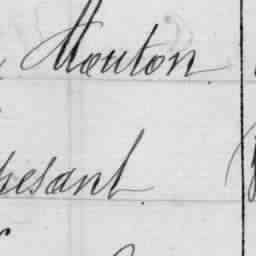 Mouton
pesant.